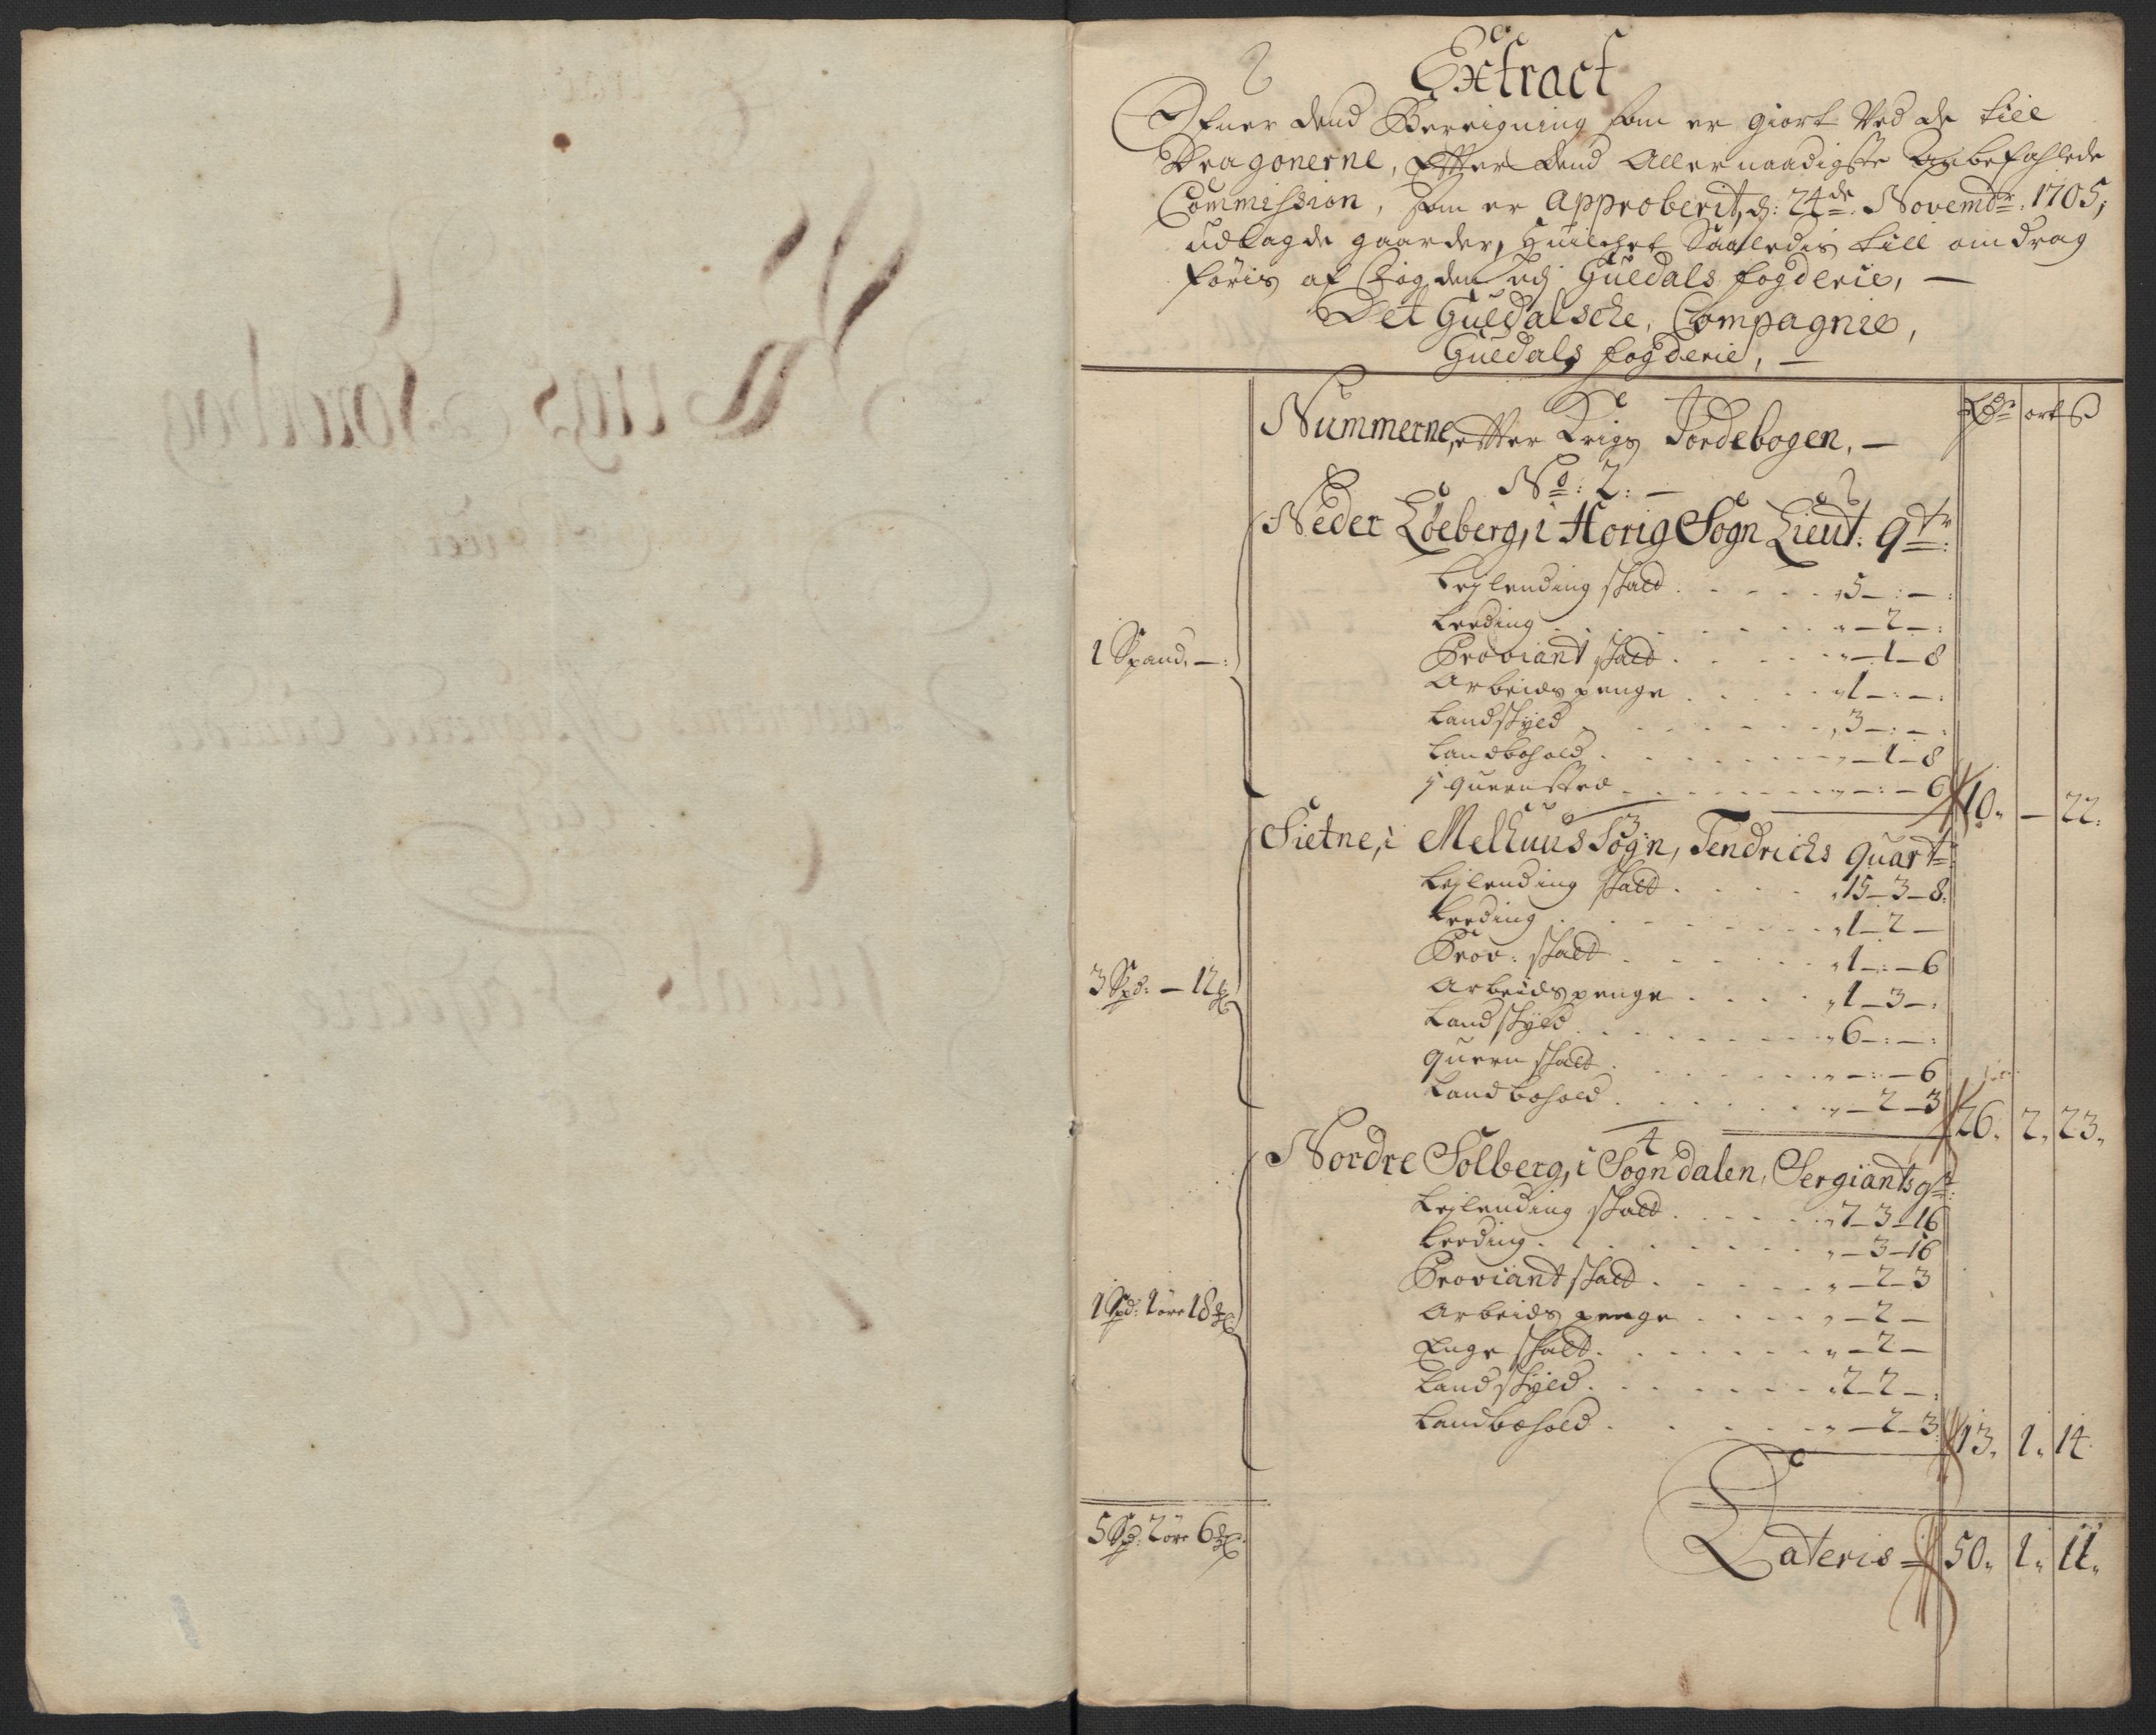 Extract
Ofuer dend Bereigning som er giort Ved de till
Dragonerne, Efter dend Allernaadigste Anbefahlede
Commission, som er Approberit, d: 24de Novembr: 1705,
udlagde gaarder, huilchet Saaledis till omdrag
føris af Fogden udj Guldals fogderie, —
Det Guldalsche, Compagnie,
Guldals fogderie, —
Rdr ort s
Nummerne, efter Krigs Jordebogen, —
No: 2: —
Neder Løeberg, i Horig Sogn Lieut: qtr:
1 Spand, —:
Lejlending skatt . . . . . 5 – : – :
Leeding . . . . . – 2 – :
Proviant skatt . . . . . – 1 – 8
Arbeids penge . . . . . 1 – : – :
Landskyld . . . . . 3 – : – :
Landbohold . . . . . – 1 – 8
1 quernsted . . . . . – : – 6 10. — 22:
3
Sietne, i Melhuus Sogn, Tendrichs quartr:
3 Spd: – 12
Lejlending skatt . . . . . 15 – 3 – 8:
Leeding . . . . . 1 – 2 –
Prov: skatt . . . . . 1 – : – 6
Arbeids penge . . . . . 1 – 3 – :
Landskyld . . . . . 6 – : – :
quern skatt . . . . . – : – 6
Landbohold . . . . . – 2 – 3 26. 2. 23.
4
Nordre Solberg, i Sogndalen, Sergiants qtr:
1 Spd: 1 øre 18
Lejlending skatt . . . . . 7 – 3 – 16
Leeding . . . . . – 3 – 16
Proviant skatt . . . . . – 2 – 3
Arbeids penge . . . . . – 2 –
Enge skatt . . . . . – 2 –
Landskyld . . . . . 2 – 2 – :
Landbohold . . . . . – 2 – 3 13. 1. 14.
5 Spd: 2 øre 6
Lateris – 50. 1. 11.